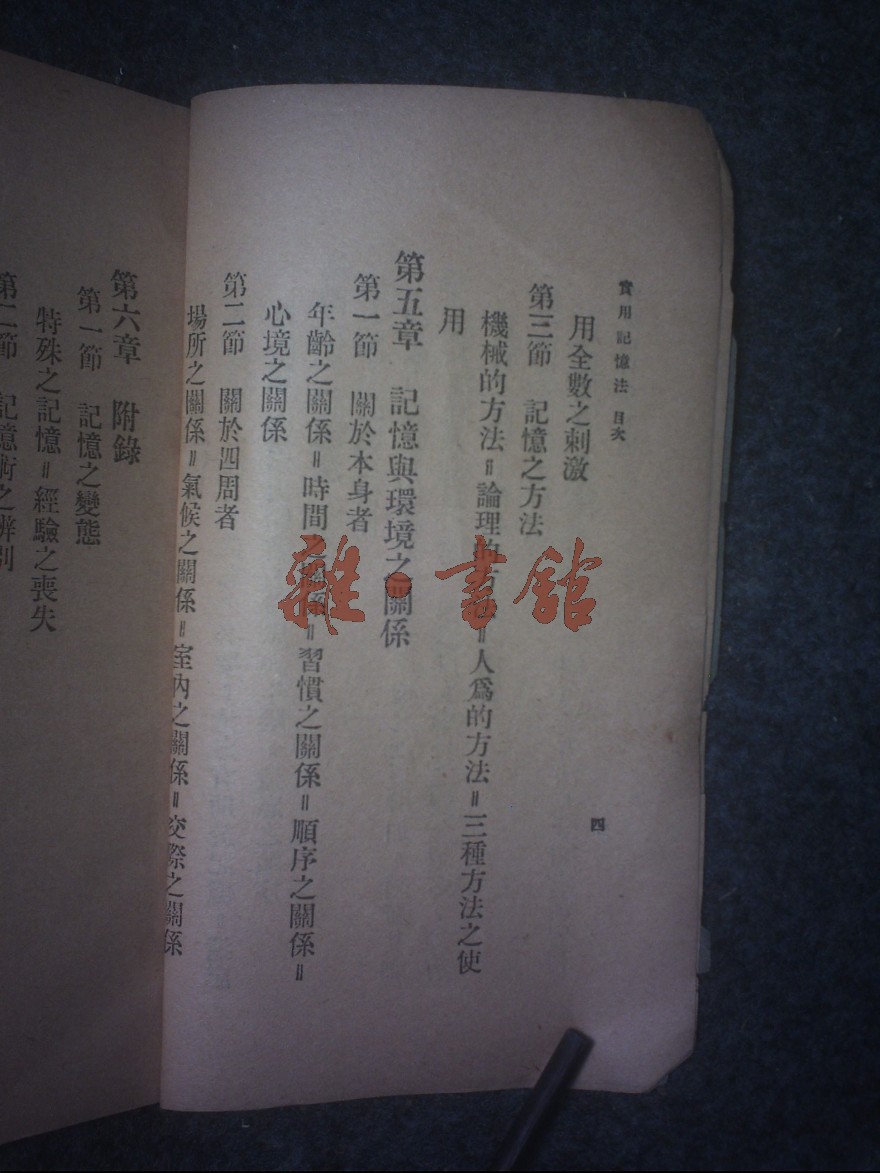 實用記憶法 目次
四
用全數之刺激
第三節 記憶之方法
機械的方法＝論理的方法＝人爲的方法＝三種方法之使
用
第五章 記憶與環境之關係
第一節 關於本身者
年齡之關係＝時間之關係＝習慣之關係＝順序之關係＝
心境之關係
第二節 關於四周者
場所之關係＝氣候之關係＝室內之關係＝交際之關係
第六章 附錄
第一節 記憶之變態
特殊之記憶＝經驗之喪失
第二節 記憶術之辨別
雜·書館